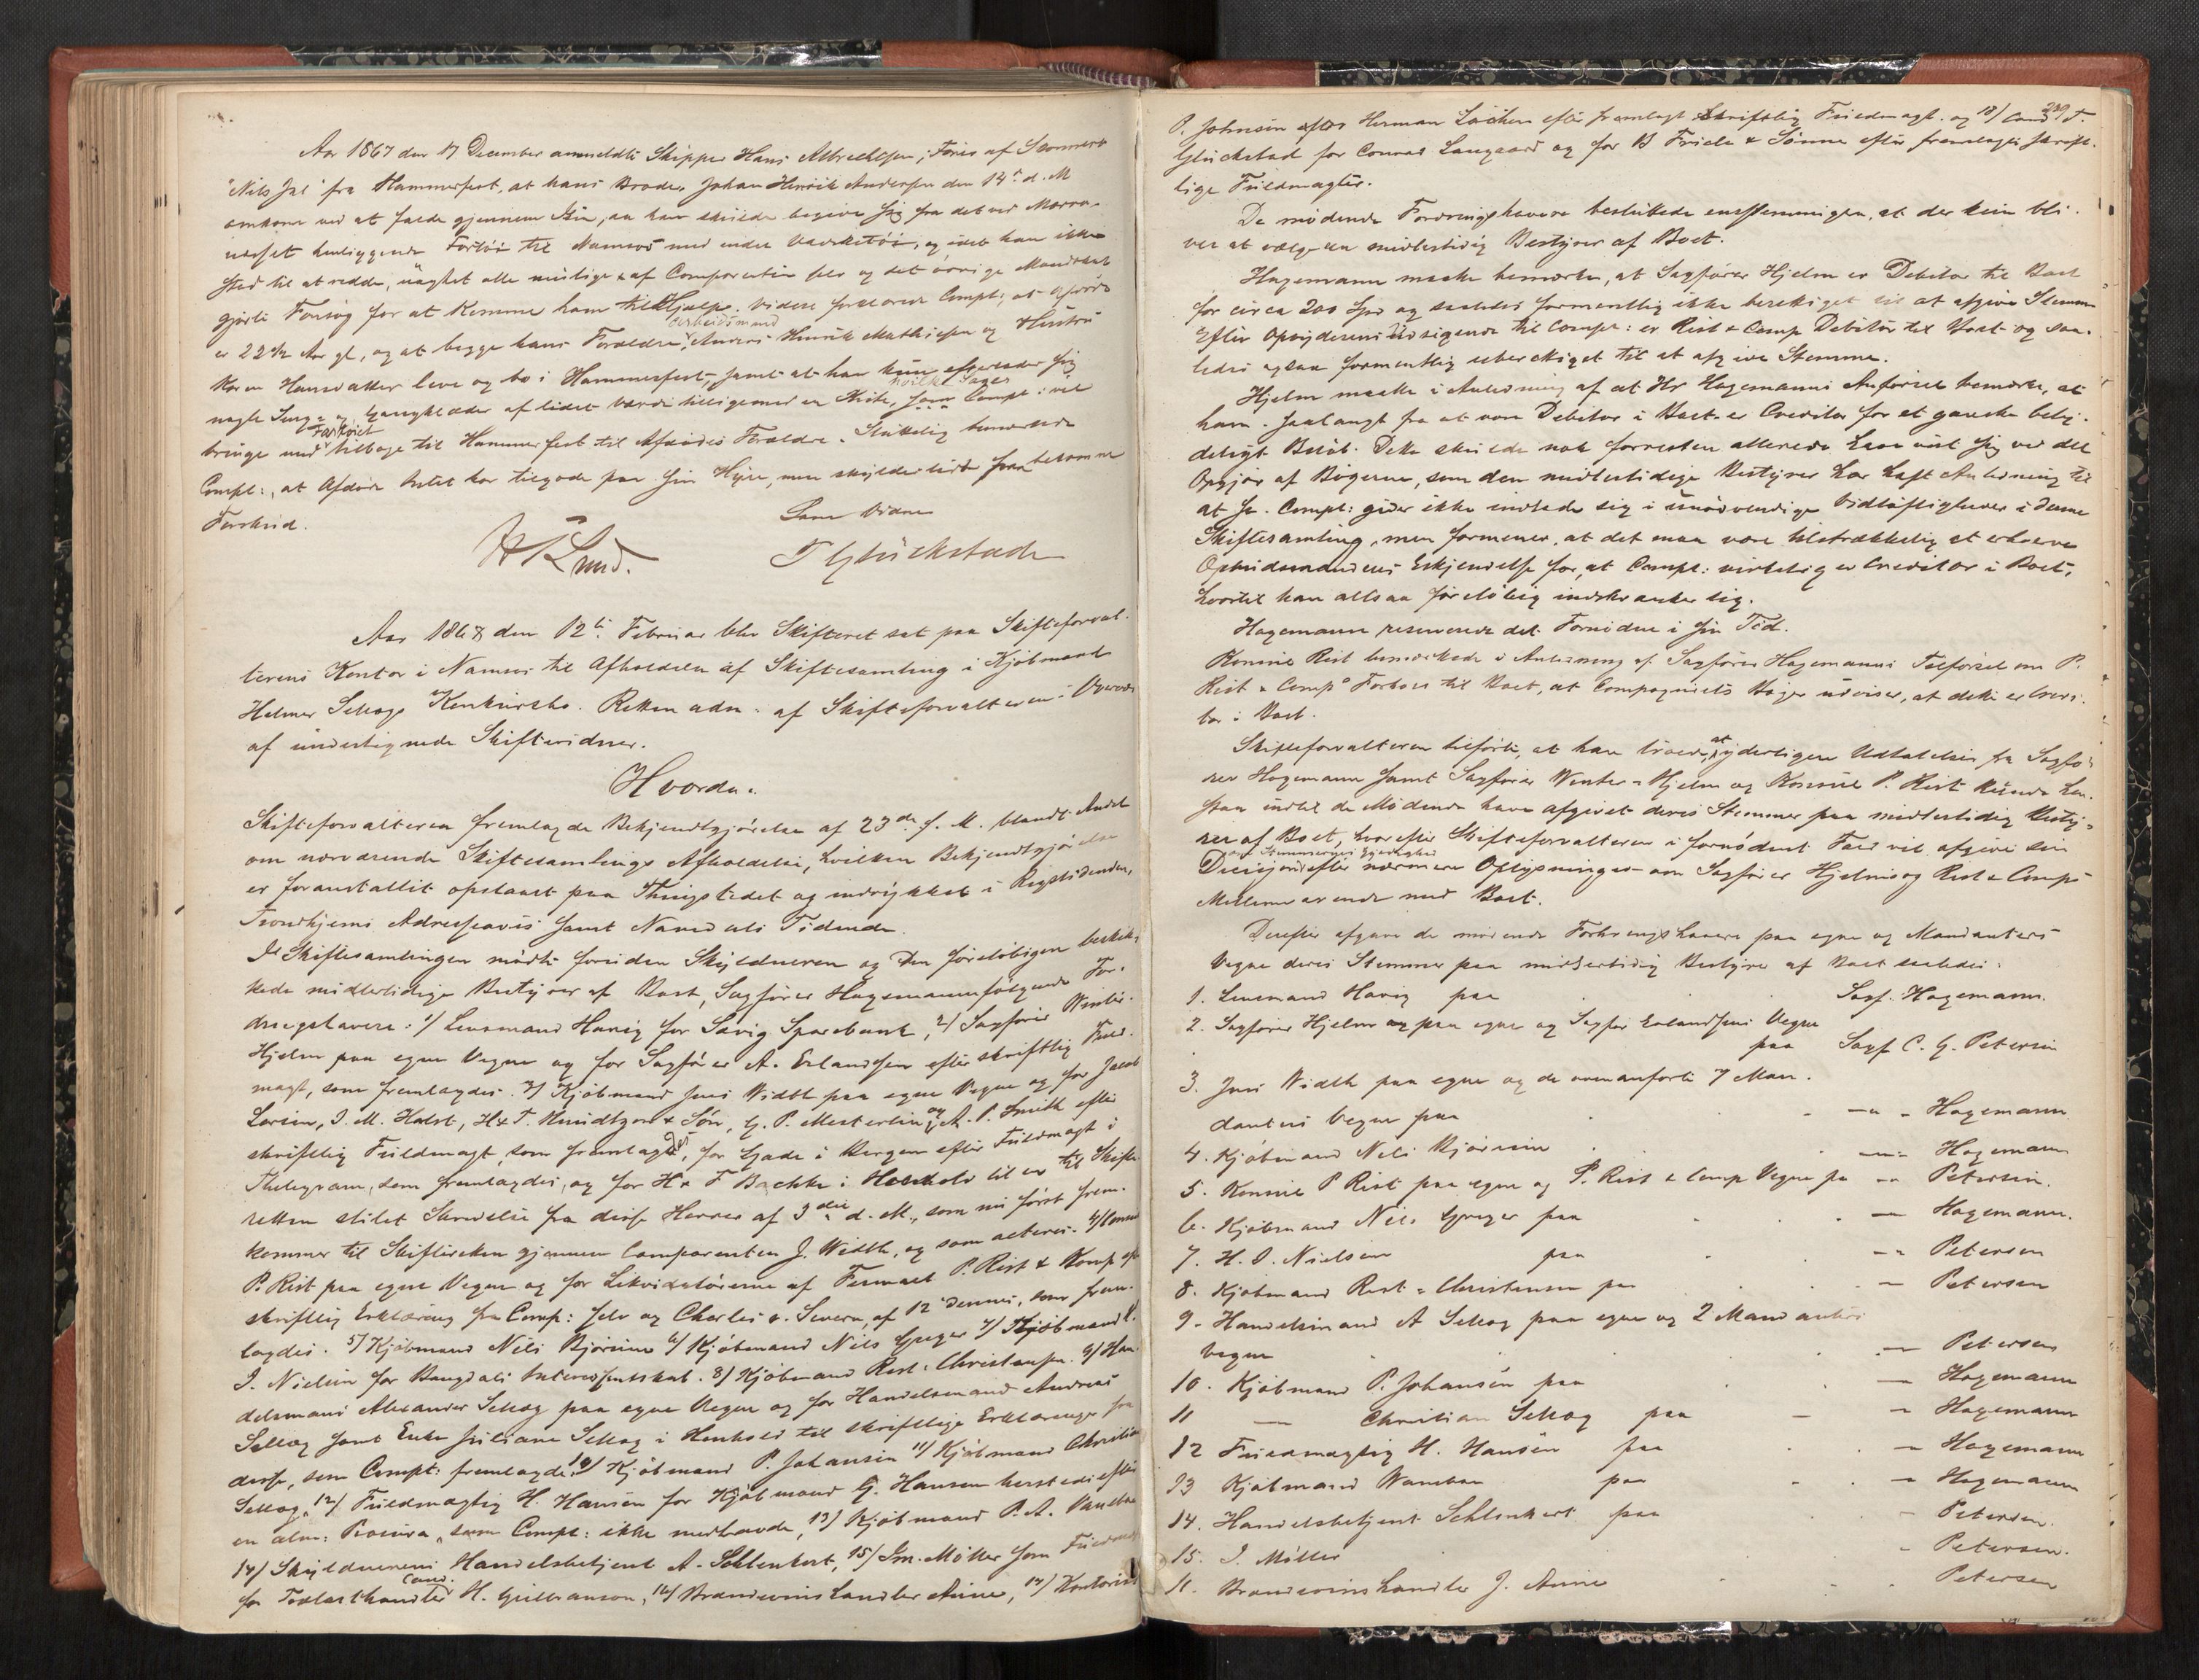 Aar 1867 den 17 December anmeldte Skipper Hans Albrechtsen, Fører af
"Nils Jul" fra Hammerfest, at hans Broder Johan Henrik Andersen den 14de d. M
omkom ved at falde gjennem Isen, da han skulde begive sig fra det ved
næsset henliggende Fartøi til Namsos med endel Vadsketøi, og idet han ikke
stod til at redde, uagtet alle mulige af Comparenten selv og det øvrige Mandskab
gjorte Forsøg for at komme ham til Hjælp. Videre forklarede Compt: at Afdøde
er 22½ Aar gl., og at begge hans Forældre, Arbeidsmand Anders Henrik Mathisen og Hustru
Karen Hansdatter leve og bo i Hammerfest, samt at han kun efterlader sig
nogle Senge og Gangklæder af lidet Værdi tilligemed en Kiste, hvilke Sager Compt: vil
bringe med Fartøiet tilbage til Hammerfest til Afdødes Forældre. Sluttelig bemærkede
Compt:, at Afdøde Intet har tilgode paa sin Hyre, men skylder lidt paa bekomne
Forskud.
Som Vidne
H K Lund. T Glückstade
Aar 1868 den 12te Februar blev Skifteret sat paa Skifteforval-
terens Kontor i Namsos til Afholdelse af Skiftesamling i Kjøbmand
Helmer Sellægs Konkursbo. Retten adm. af Skifteforvalteren i Overvær
af undertegnede Skiftevidner.
Hvorda:
Skifteforvalteren fremlagde Bekjendtgjørelse af 23de f. M. blandt Andet
om nærværende Skiftesamlings Afholdelse, hvilken Bekjendtgjørelse
er foranstaltet opslaaet paa Thingstedet og indrykket i Rigstidenden,
Trondhjems Adresseavis samt Namdals Tidende.
I Skiftesamlingen mødte foruden Skyldneren og den foreløbigen beskik-
kede midlertidige Bestyrer af Boet, Sagfører Hagemann følgende For-
dringshavere: 1/ Lensmand Havig for Sævig Sparebank, 2/ Sagfører Winter-
Hjelm paa egne Vegne og for Sagfører A. Erlandsen efter skriftlig Fuld-
magt, som fremlagdes. 3/ Kjøbmand Jens Width paa egne Vegne og for Jacob
Larsen, I. M. Holst, H & T. Knudtzon & Søn, G. P. Mesterlin og A. P. Smith efter
skriftlig Fuldmagt, som fremlagdes, for Gade i Bergen efter Fuldmagt i
Thelegram, som fremlagdes, og for H & F Bachke i Henhold til en til Skifte-
retten stilet Skrivelse fra disse Herrer af 3die d. M., som nu først frem-
kommer til Skifteretten gjennem Comparenten J. Width, og som acteres. 4/ Consul
P. Rist paa egne Vegne og for Likvidatørerne af Firmaet P. Rist & Komp efter
skriftlig Erklæring fra Comp: selv og Charles v. Severn, af 12 dennes, som frem-
lagdes. 5/ Kjøbmand Nils Bjørum 6/ Kjøbmand Nils Greger 7/ Kjøbmand H.
I. Nielsen for Bangdals Interessentskab. 8/ Kjøbmand Rist-Christensen. 9/ Han-
delsmand Alexander Sellæg paa egne Vegne og for Handelsmand Andreas
Sellæg samt Enke Juliane Sellæg i Henhold til skriftlige Erklæringer fra
disse, som Compt: fremlagde. 10/ Kjøbmand P. Johansen 11/ Kjøbmand Christian
Sellæg, 12/ Fuldmægtig H. Hansen for Kjøbmand G. Hansen hersteds efter
en alm: Procura, som Compt: ikke medhavde, 13/ Kjøbmand P. A.
14/ Skyldnerens Handelsbetjent A. Schlenkert, 15/ Im. Møller som Fuldmægtig
for Toldasthandler Cand. H. Gulbranson, 16/ Brændevinshandler Aune, 17/ Kontorist
239
P. Johnsen efter Herman Løchen efter fremlagt skriftlig Fuldmagt. og 18/ Cand T.
Glückstad for Conrad Langaard og for B Friele & Sønner efter fremlagte skrift-
lige Fuldmagter.
De mødende Fordringshavere besluttede enstemmigen, at der kun bli-
ver at vælge en midlertidig Bestyrer af Boet.
Hagemann maatte bemærke, at Sagfører Hjelm er Debitor til Boet
for circa 200 Spd og saaledes formentlig ikke berettiget til at afgive Stemme
Efter Opbyderens Udsigende til Compt: er Rist & Comp Debitor til Boet og saa-
ledes ogsaa formentlig uberettiget til at afgive Stemme.
Hjelm maatte i Anledning af at Hr Hagemanns Anførsel bemærke, at
han. saalangt fra at være Debitor i Boet er Creditor for et ganske bety-
deligt Beløb. Dette skulde nok forresten allerede have viist sig ved det
Opgjør af Bøgerne, som den midlertidige Bestyrer har havt Anledning til
at se. Compt: gider ikke indlade sig i unødvendige Vidtløftigheder i denne
Skiftesamling, men formener, at det maa være tilstrækkelig at erhverve
Opbudsmandens Erkjendelse for, at Compt: virkelig er Creditor i Boet,
hvortil han altsaa foreløbig indskrænker sig.
Hagemann reserverede det Fornødne i sin Tid.
Konsul Rist bemærkede i Anledning af Sagfører Hagemanns Tilførsel om P.
Rist & Comps Forhold til Boet, at Compagniets Bøger udviser, at dette er Credi-
tor i Boet.
Skifteforvalteren tilførte, at han troede, at yderligere Udtalelser fra Sagfø-
rer Hagemann samt Sagfører Winter-Hjelm og Konsul P. Rist kunde hen-
staa indtil de Mødende have afgivet deres Stemmer paa midlertidig Besty-
rer af Boet, hvorefter Skifteforvalteren i fornødent Fald vil afgive sin
Decision om Stemmernes Gyldighed efter nærmere Oplysninger om Sagfører Hjelms og Rist & Comps
Mellemværende med Boet.
Derefter afgave de mødende Fordringshavere paa egne og Mandanters
Vegne deres Stemmer paa midlertidig Bestyrer af Boet saaledes:
1. Lensmand Havig paa Sagf. Hagemann.
2. Sagfører Hjelm paa egne og Sagfør Erlandsens Vegne
paa Sagf C. G. Petersen
3. Jens Width paa egne og de ovenanførte 7 Man-
danters Vegne paa — „ - Hagemann
4. Kjøbmand Nils Bjørum — „ - Hagemann
5. Konsul P Rist paa egne og P. Rist & Comp Vegne paa — „ Petersen.
6. Kjøbmand Nils Greger paa — Hagemann.
7. H. I. Nielsen paa — „ Petersen
8. Kjøbmand Rist-Christensen paa — Petersen
9. Handelsmand A Sellæg paa egne og 2 Mandanters
Vegne — Petersen
10. Kjøbmand P. Johansen paa — Hagemann
11 — Christian Sellæg paa — Hagemann
12 Fuldmægtig H. Hansen paa — Hagemann
13 Kjøbmand paa — Hagemann
14. Handelsbetjent Schlenkert paa - Petersen.
15. I. Møller - Petersen.
16. Brændevinshandler J. Aune Petersen